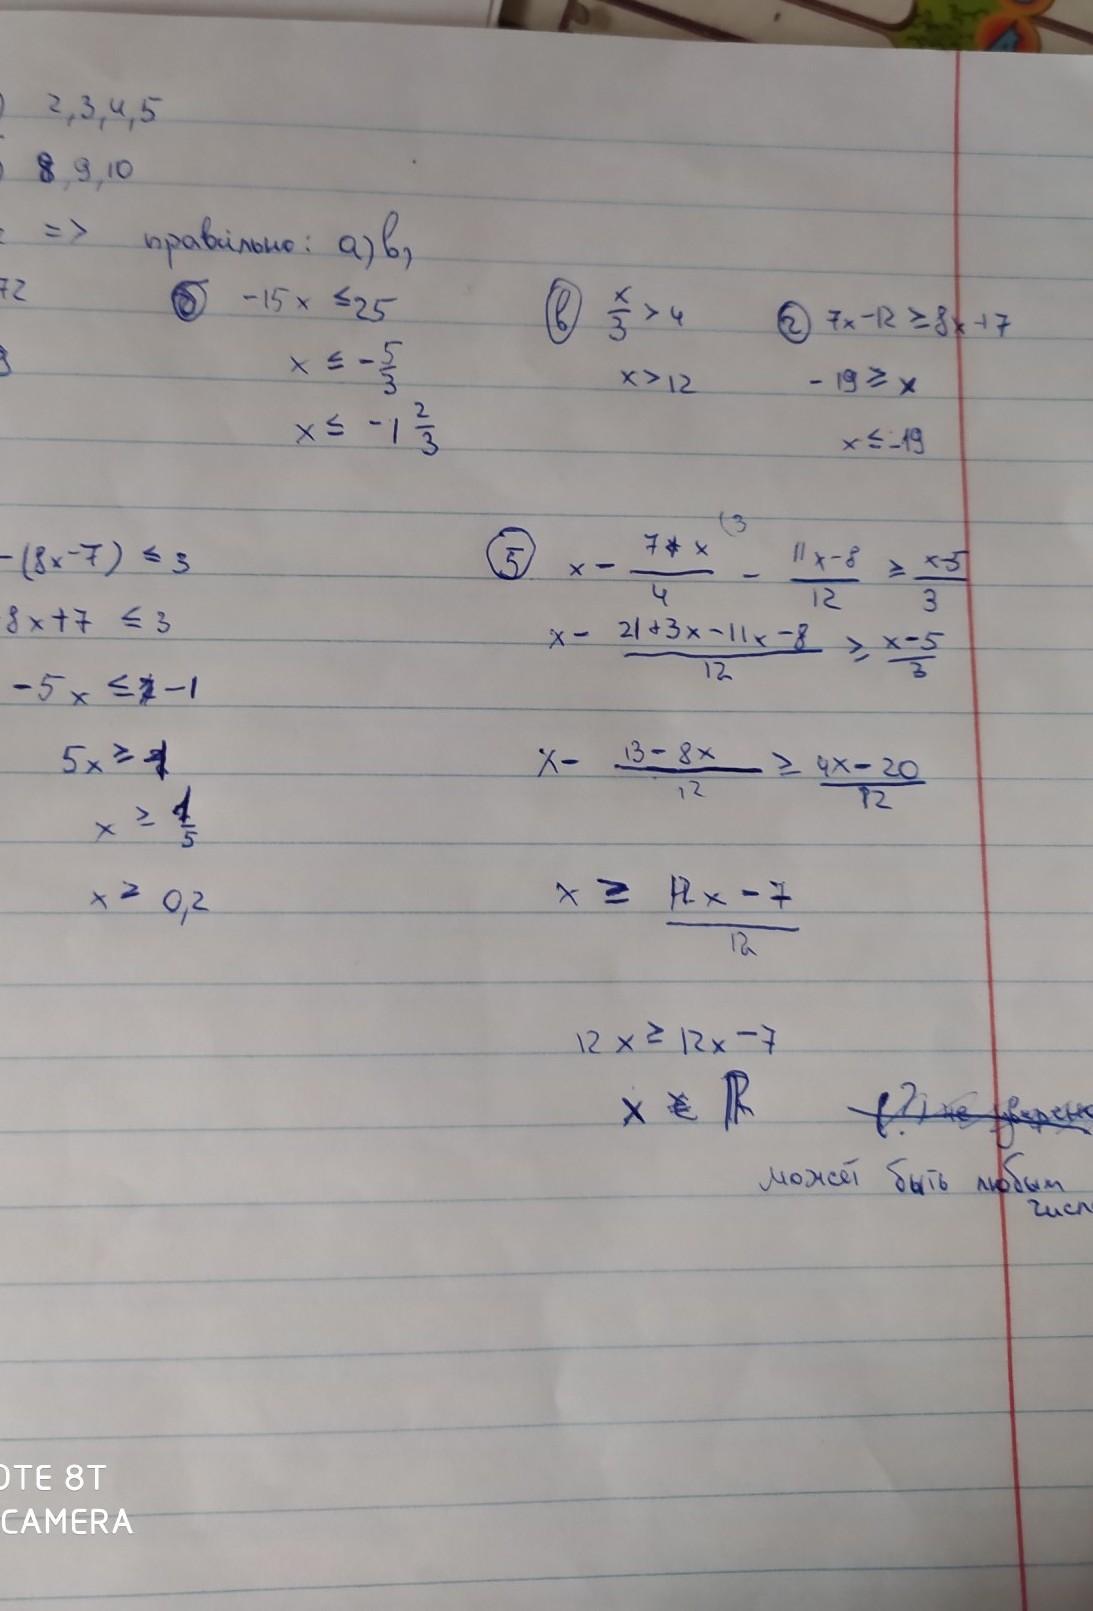 2,3,4,5
8,9,10
=> правильно: а)в)
72
б -15x ≤ 25
x ≤ -5/3
x ≤ -1 2/3
в x/3 > 4
x > 12
г 7x-12 ≥ 8x+7
-19 ≥ x
x ≤ -19
-(8x-7) ≤ 3
8x+7 ≤ 3
-5x ≤ -1
5x ≥ 1
x ≥ 1/5
x ≥ 0,2
5 x - (7+x)/4 (3 - (11x-8)/12 ≥ (x-5)/3
x - (21+3x-11x-8)/12 ≥ (x-5)/3
x - (13-8x)/12 ≥ (4x-20)/12
x ≥ (12x-7)/12
12x ≥ 12x-7
x ∈ ℝ
может быть любым
числ
OTE 8T
CAMERA